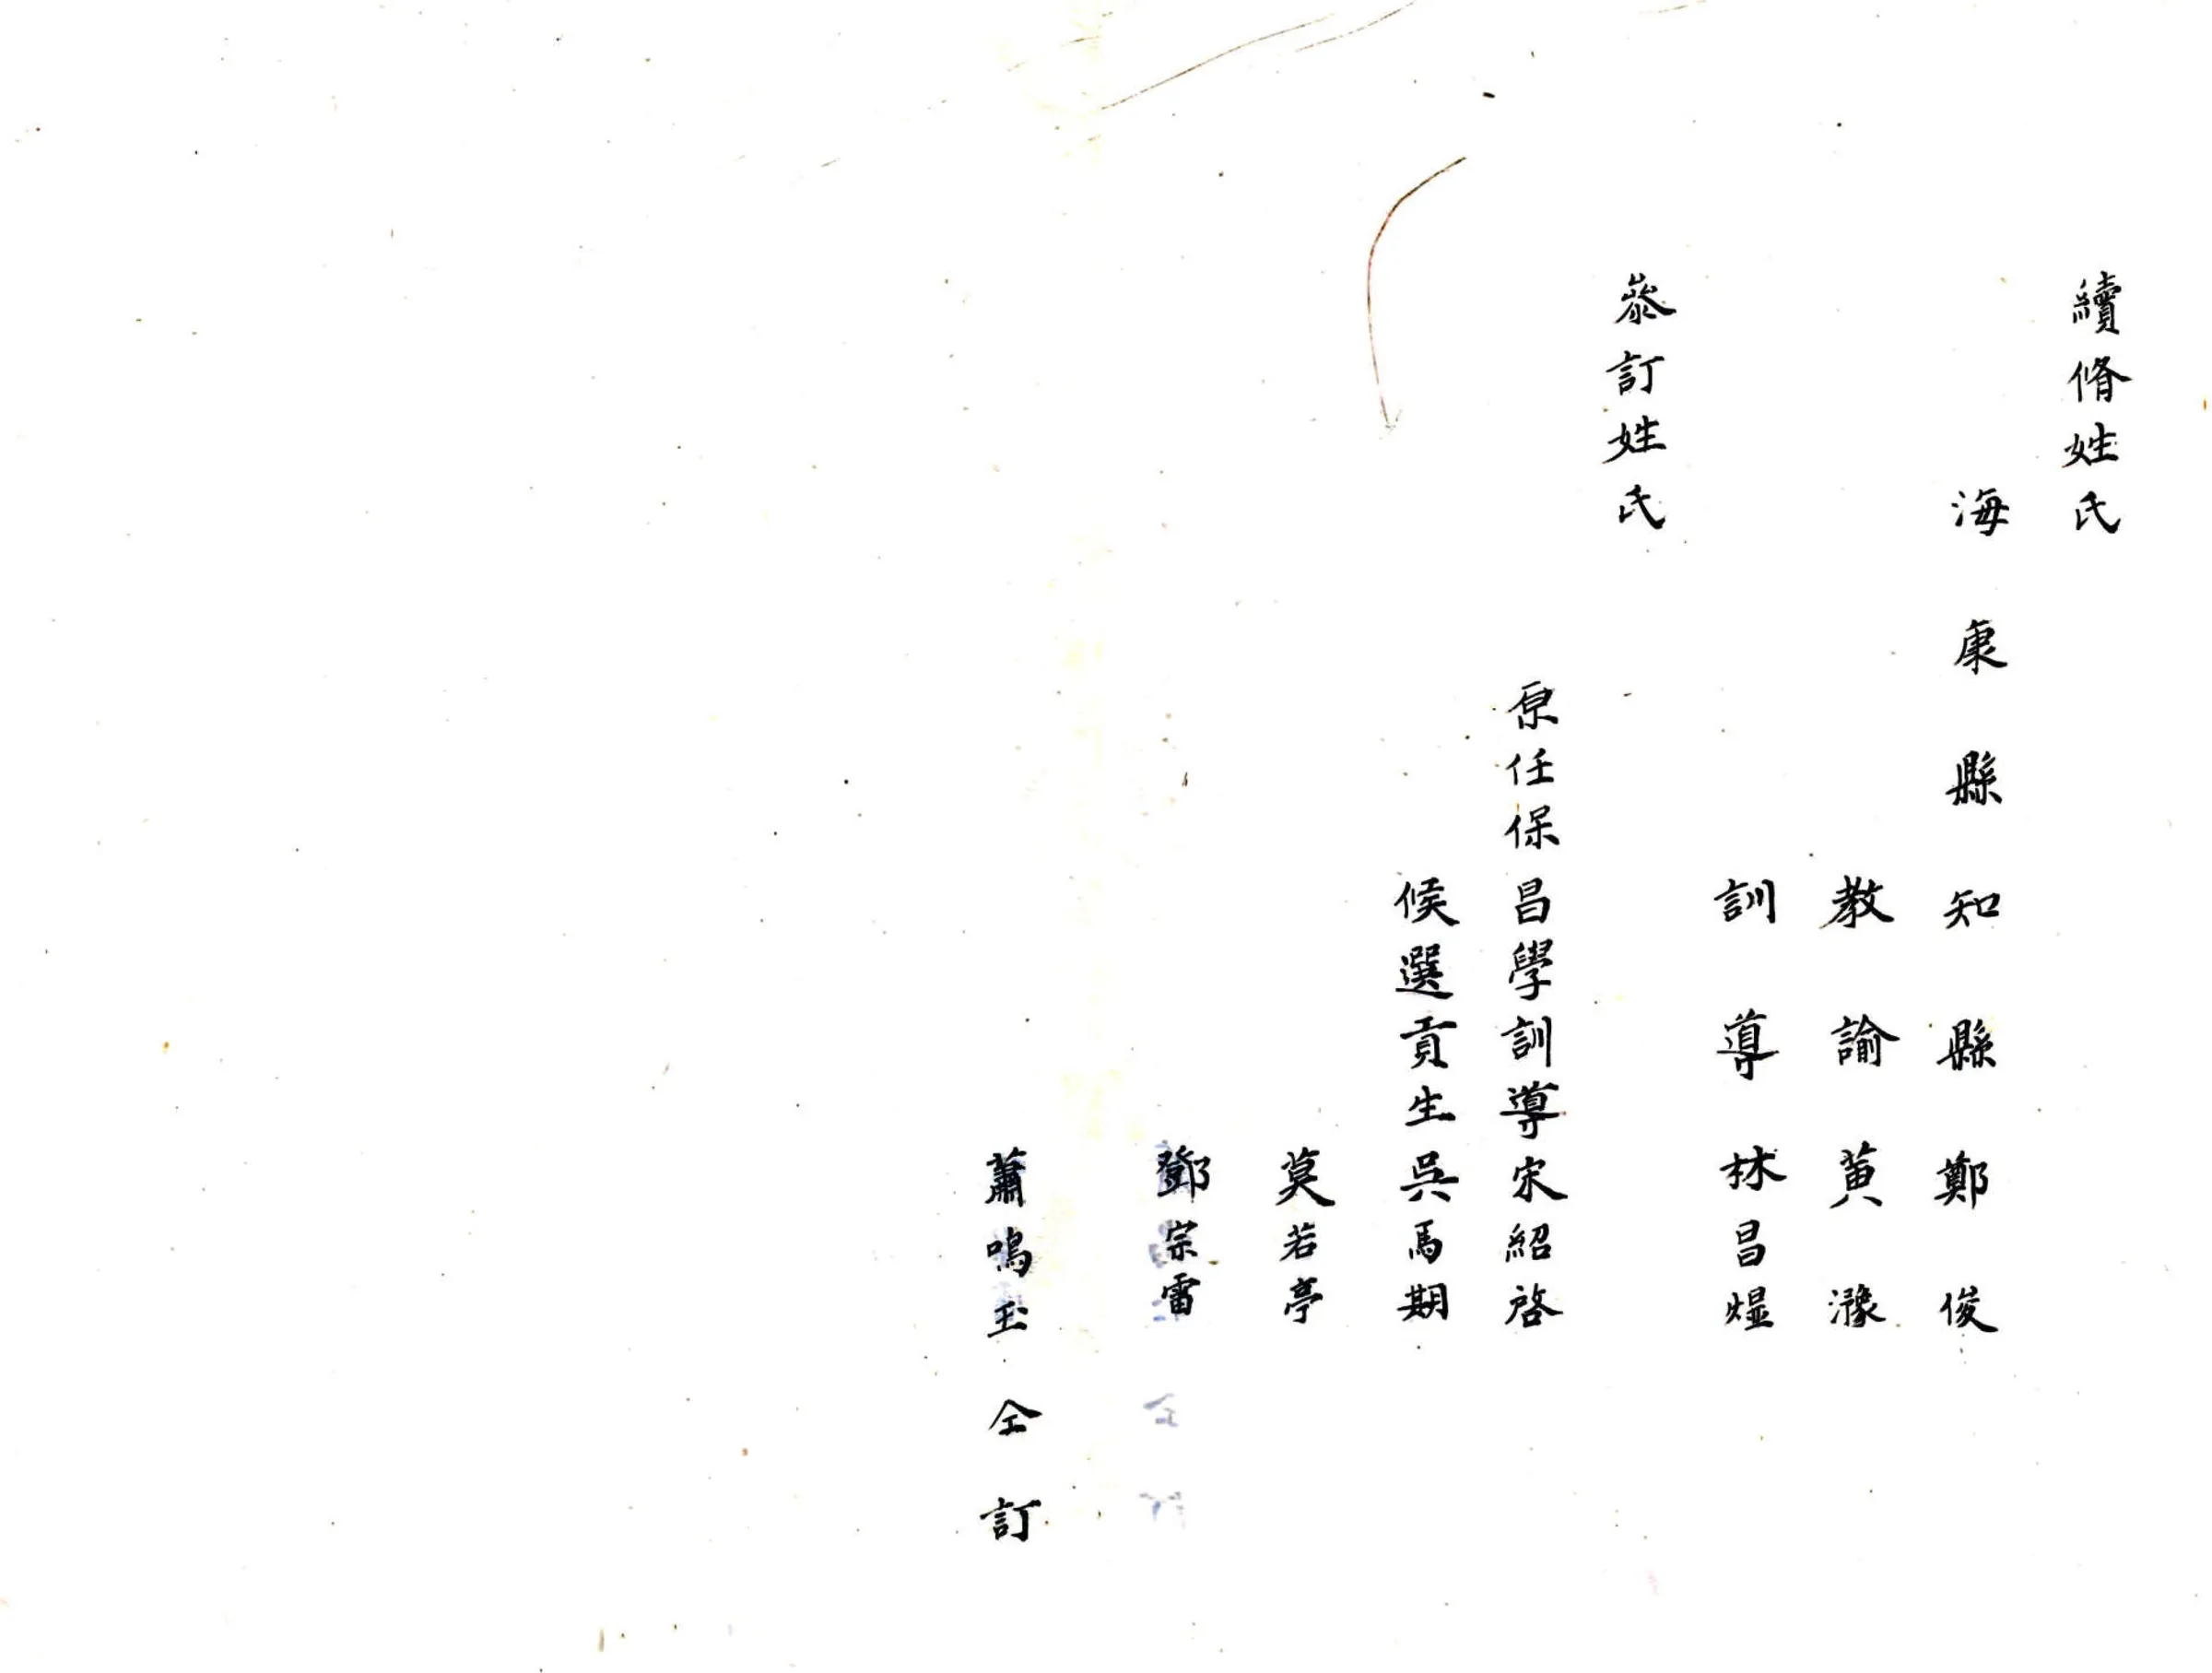 續脩姓氏
海康縣知縣鄭俊
教諭黃瀪
訓導林昌熅
叅訂姓氏
原任保昌學訓導宋紹啓
候選貢生吳馬期
莫若亭
鄧宗雷
蕭鳴玉仝訂